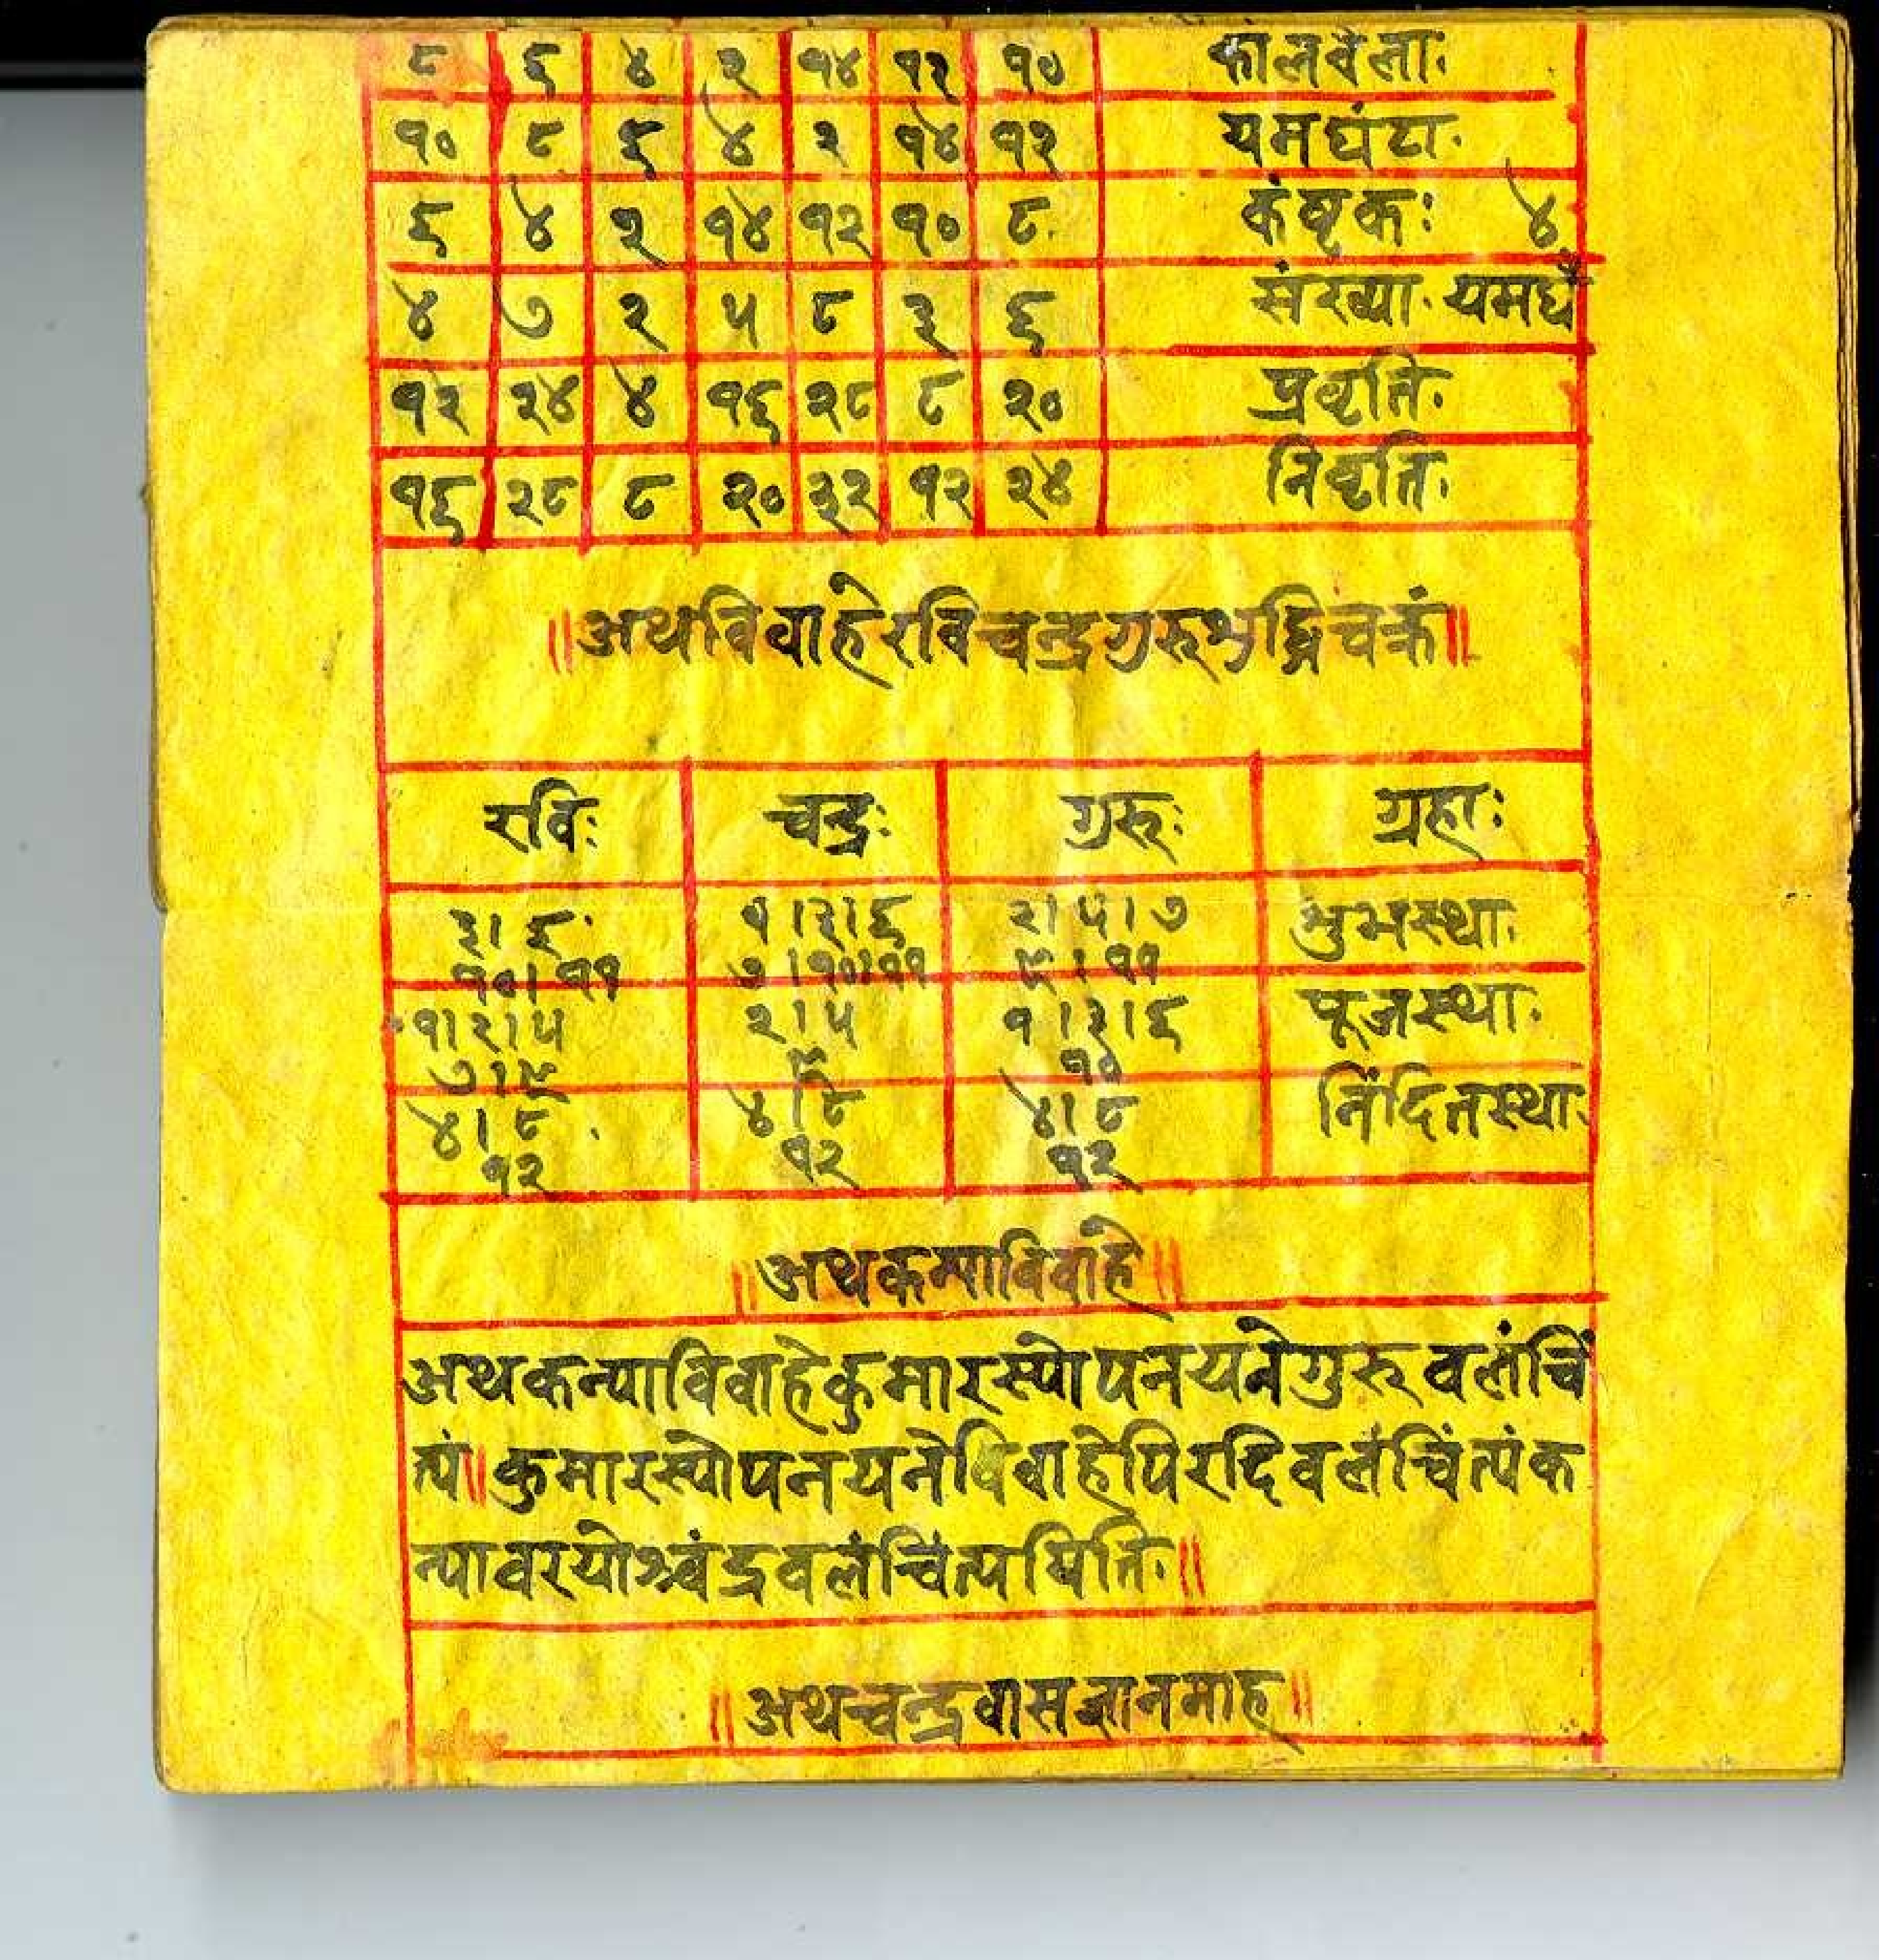 ८ ६ ४ २ १४ १२ १० कालवेलाः
१० ८ ६ ४ २ १४ १२ यमघंटाः
६ ४ २ १४ १२ १० ८ कंष्टकः ४
४ ७ २ ५ ८ ३ ६ संख्या यमघं
१२ २४ ४ १६ २८ ८ २० प्रवृति
१६ २८ ८ २० ३२ १२ २४ निवृति
॥अथविवाहेरविचन्द्रगुरुशुद्धिचक्रं॥
रविः चन्द्रः गुरुः ग्रहाः
३।६ १।३।६ २।५।७ शुभस्था
१०।११ ७।१०।११ ९।११
१।२।५ २।५ १।३।६ पूजस्था
७।९ ९ १०
४।८ ४।८ ४।८ निंदितस्था
१२ १२ १२
॥अथकन्याविवाहे॥
अथकन्याविवाहेकुमारस्योपनयनेगुरुवलंचिं
त्यं॥कुमारस्योपनयनेविवाहेपिरविवलंचिंत्यंक
न्यावरयोश्चंद्रवलंचिंत्यमिति॥
॥अथचन्द्रवासज्ञानमाह॥